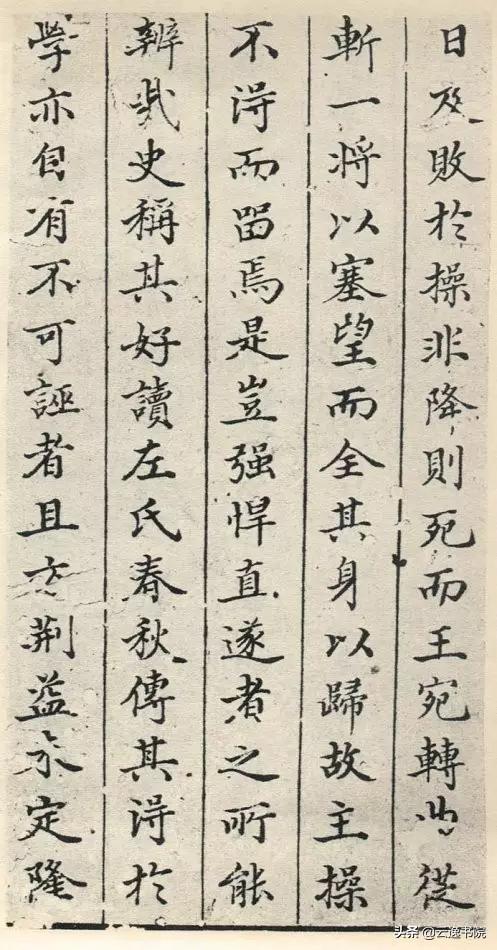 日及敗於操非降則死而王宛轉從
斬一將以塞望而全其身以歸故主操
不得而留焉是豈强悍直遂者之所能
辨哉史稱其好讀左氏春秋傳其得於
學亦自有不可誣者且方荆益未定隆
头条@云逸书院